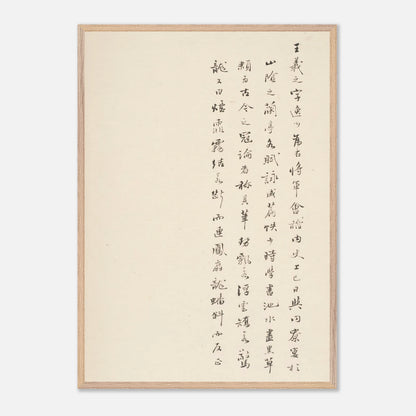 王羲之字逸少為右將軍會稽內史上巳日與同寮宴於
山陰之蘭亭各賦詠成篇帙少時學書池水盡黑草
隸為古今之冠論者稱其筆勢飄若浮雲矯若驚
龍又曰煙霏霧結若斷而連鳳翥龍蟠斜而反正